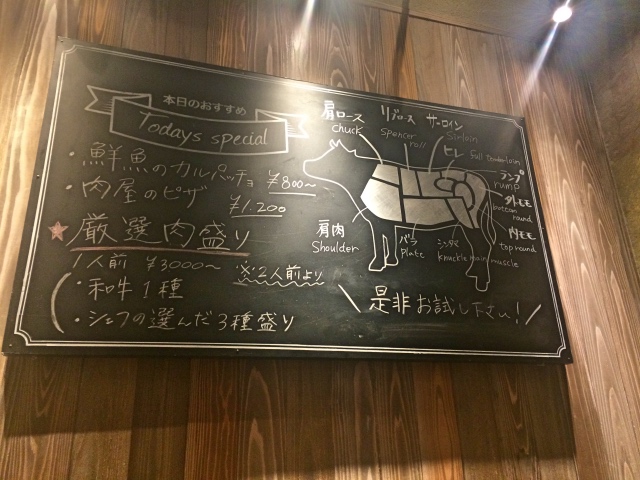 本日のおすすめ
Todays special
・鮮魚のカルパッチョ ¥800〜
・肉屋のピザ ¥1.200
厳選肉盛り
1人前 ¥3000〜 ※2人前より
・和牛1種
・シェフの選んだ3種盛り
肩ロース
chuck
リブロース
Spencer
roll
サーロイン
Sirloin
ヒレ
full tenderloin
ランプ
rump
外モモ
bottom
round
内モモ
top round
肩肉
Shoulder
バラ
plate
シンタマ
knuckle main muscle
是非お試し下さい!